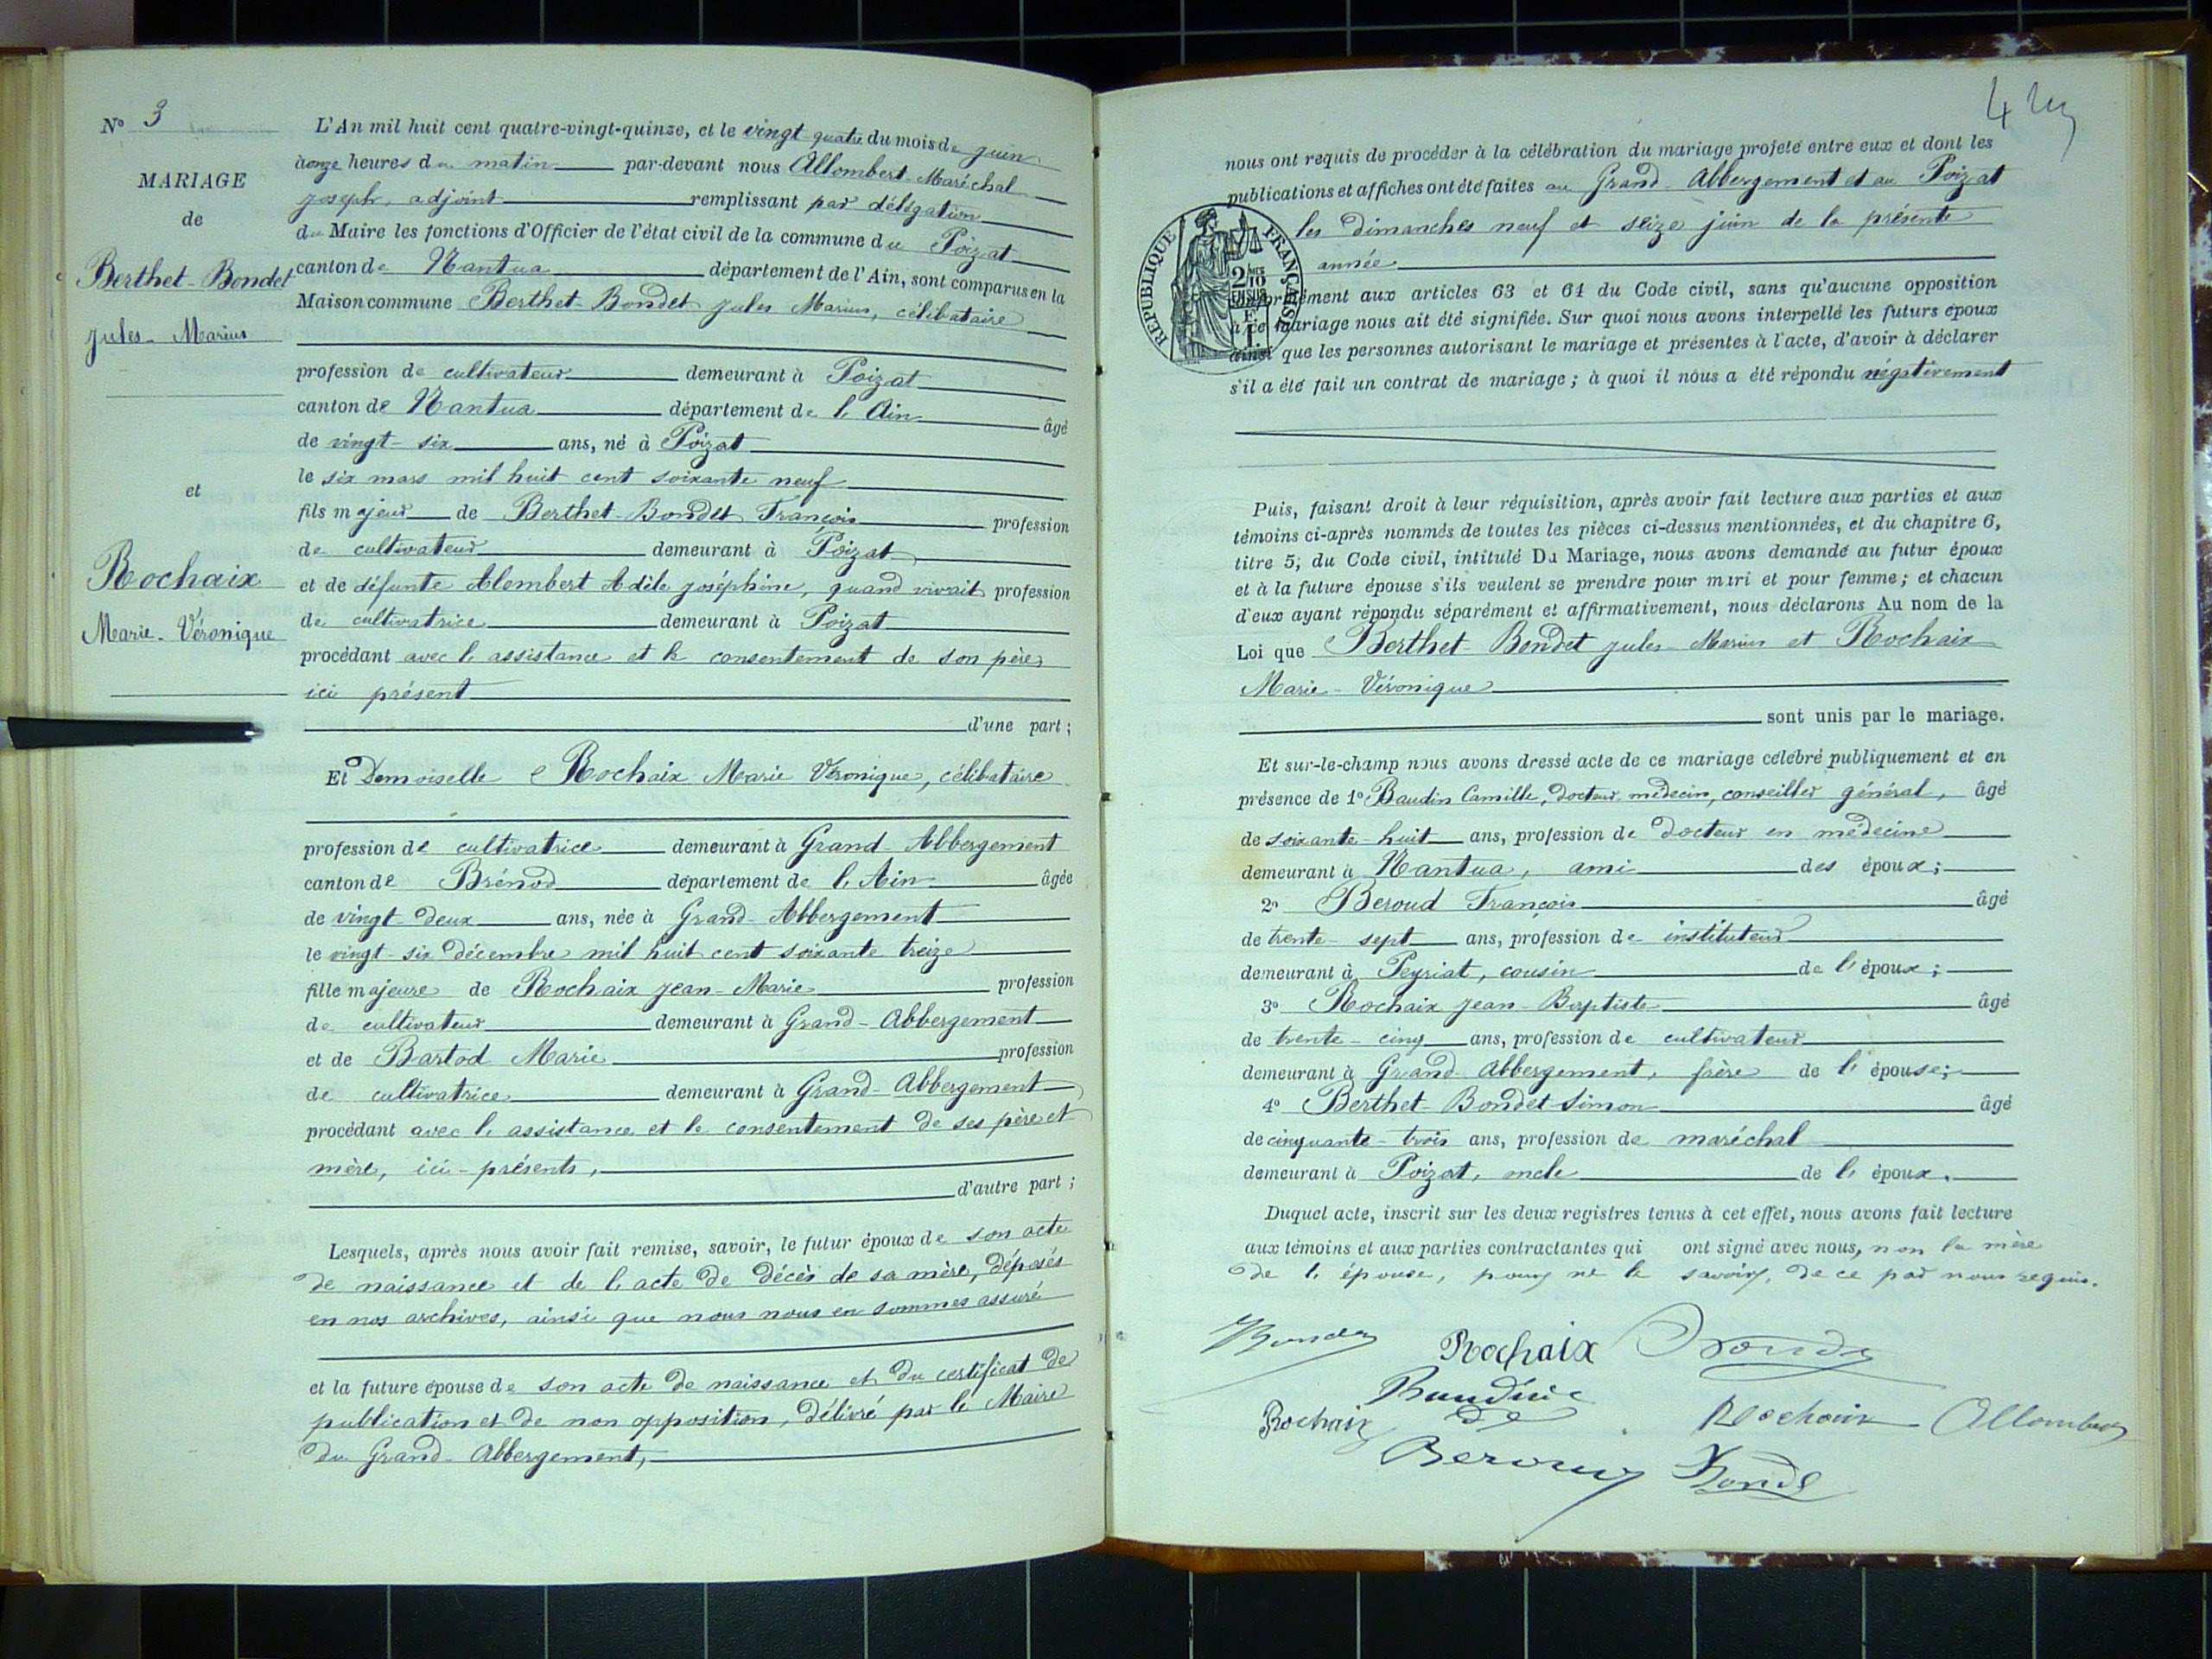 N° 3
MARIAGE
de
Berthet-Bondet
Jules-Marius
et
Rochaix
Marie-Véronique
L'An mil huit cent quatre-vingt-quinze, et le vingt-quatre du mois de juin
à onze heures du matin par-devant nous Allombert-Maréchal
joseph, adjoint remplissant par délégation
du Maire les fonctions d'Officier de l'état civil de la commune du Poizat
canton de Nantua département de l'Ain, sont comparus en la
Maison commune Berthet-Bondet Jules Marius, célibataire
profession de cultivateur demeurant à Poizat
canton de Nantua département de l'Ain âgé
de vingt-six ans, né à Poizat
le six mars mil huit cent soixante neuf
fils majeur de Berthet-Bondet François profession
de cultivateur demeurant à Poizat
et de défunte Alombert Adèle joséphine, quand vivait profession
de cultivatrice demeurant à Poizat
procédant avec l'assistance et le consentement de son père,
ici présent
d'une part ;
Et Demoiselle Rochaix Marie Véronique, célibataire
profession de cultivatrice demeurant à Grand-Abbergement
canton de Brénod département de l'Ain âgée
de vingt-deux ans, née à Grand-Abbergement
le vingt-six décembre mil huit cent soixante treize
fille majeure de Rochaix Jean-Marie profession
de cultivateur demeurant à Grand-Abbergement
et de Bartod Marie profession
de cultivatrice demeurant à Grand-Abbergement
procédant avec l'assistance et le consentement de ses père et
mère, ici-présents,
d'autre part ;
Lesquels, après nous avoir fait remise, savoir, le futur époux de son acte
de naissance et de l'acte de décès de sa mère, déposés
en nos archives, ainsi que nous nous en sommes assuré
et la future épouse de son acte de naissance et du certificat de
publication et de non opposition, délivré par le Maire
du Grand-Abbergement,
nous ont requis de procéder à la célébration du mariage projeté entre eux et dont les
publications et affiches ont été faites au Grand-Abbergement et au Poizat
les dimanches neuf et seize juin de la présente
année
RÉPUBLIQUE FRANÇAISE
2/10 EN SUS
conformément aux articles 63 et 64 du Code civil, sans qu'aucune opposition
à ce mariage nous ait été signifiée. Sur quoi nous avons interpellé les futurs époux
ainsi que les personnes autorisant le mariage et présentes à l'acte, d'avoir à déclarer
s'il a été fait un contrat de mariage ; à quoi il nous a été répondu négativement
Puis, faisant droit à leur réquisition, après avoir fait lecture aux parties et aux
témoins ci-après nommés de toutes les pièces ci-dessus mentionnées, et du chapitre 6,
titre 5; du Code civil, intitulé Du Mariage, nous avons demandé au futur époux
et à la future épouse s'ils veulent se prendre pour mari et pour femme ; et chacun
d'eux ayant répondu séparément et affirmativement, nous déclarons Au nom de la
Loi que Berthet-Bondet Jules-Marius et Rochaix
Marie-Véronique
sont unis par le mariage.
Et sur-le-champ nous avons dressé acte de ce mariage célébré publiquement et en
présence de 1° Baudin Camille, docteur médecin, conseiller général, âgé
de soixante-huit ans, profession de docteur en médecine
demeurant à Nantua, ami des époux ;
2° Beroud François âgé
de trente-sept ans, profession de instituteur
demeurant à Peyriat, cousin de l'époux ;
3° Rochaix Jean-Baptiste âgé
de trente-cinq ans, profession de cultivateur
demeurant à Grand-Abbergement, frère de l'épouse ;
4° Berthet-Bondet Simon âgé
de cinquante-trois ans, profession de maréchal
demeurant à Poizat, oncle de l'époux.
Duquel acte, inscrit sur les deux registres tenus à cet effet, nous avons fait lecture
aux témoins et aux parties contractantes qui ont signé avec nous, non la mère
de l'épouse, pour ne le savoir, de ce par nous requis.
Rochaix
Baudin
Rochaix Rochaix Allombert
Beroud